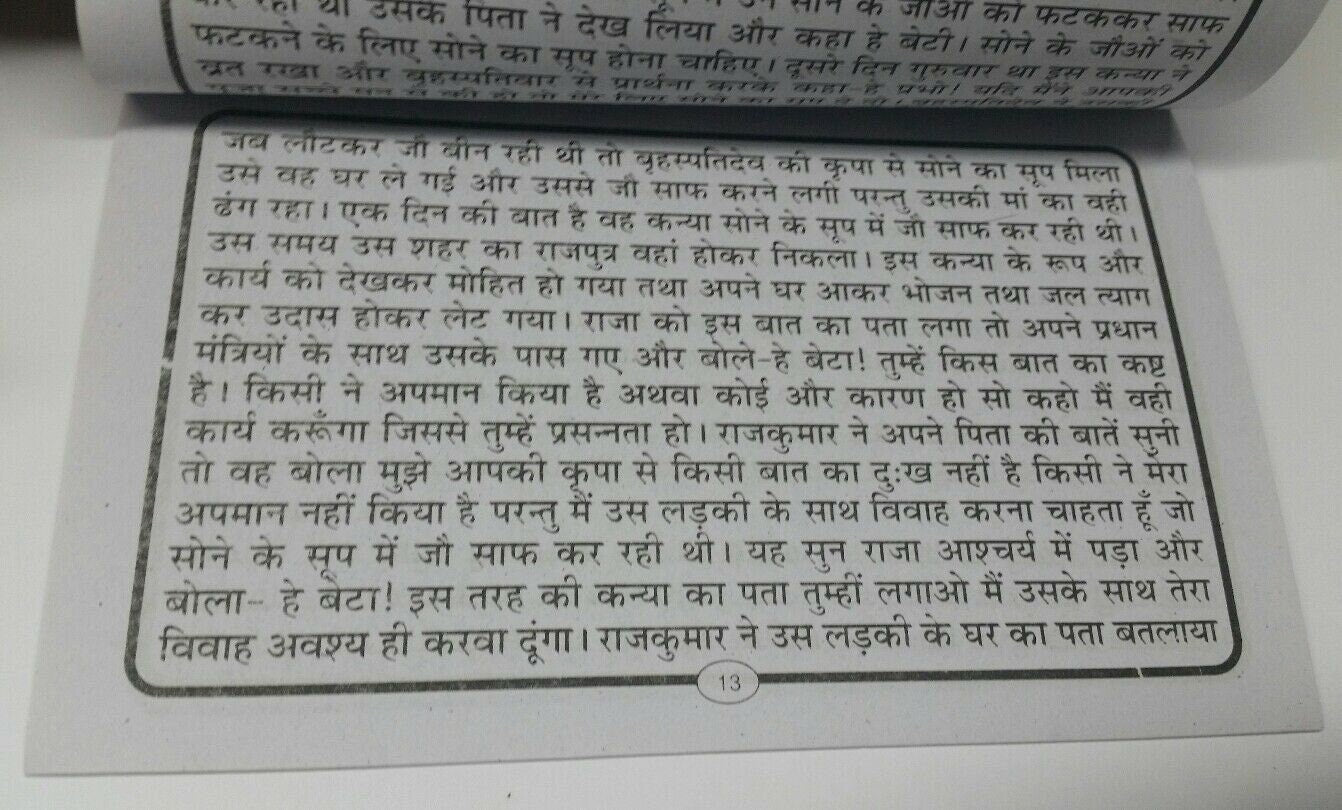 कर रही थी उसके पिता ने देख लिया और कहा हे बेटी। सोने के जौओं को
फटकने के लिए सोने का सूप होना चाहिए। दूसरे दिन गुरुवार था इस कन्या ने
व्रत रखा और बृहस्पतिवार से प्रार्थना करके कहा-हे प्रभो! यदि मैंने आपकी
जब लौटकर जौ बीन रही थी तो बृहस्पतिदेव की कृपा से सोने का सूप मिला
उसे वह घर ले गई और उससे जौ साफ करने लगी परन्तु उसकी मां का वही
ढंग रहा। एक दिन की बात है वह कन्या सोने के सूप में जौ साफ कर रही थी।
उस समय उस शहर का राजपुत्र वहां होकर निकला। इस कन्या के रूप और
कार्य को देखकर मोहित हो गया तथा अपने घर आकर भोजन तथा जल त्याग
कर उदास होकर लेट गया। राजा को इस बात का पता लगा तो अपने प्रधान
मंत्रियों के साथ उसके पास गए और बोले-हे बेटा! तुम्हें किस बात का कष्ट
है। किसी ने अपमान किया है अथवा कोई और कारण हो सो कहो मैं वही
कार्य करूँगा जिससे तुम्हें प्रसन्नता हो। राजकुमार ने अपने पिता की बातें सुनी
तो वह बोला मुझे आपकी कृपा से किसी बात का दुःख नहीं है किसी ने मेरा
अपमान नहीं किया है परन्तु मैं उस लड़की के साथ विवाह करना चाहता हूँ जो
सोने के सूप में जौ साफ कर रही थी। यह सुन राजा आश्चर्य में पड़ा और
बोला- हे बेटा! इस तरह की कन्या का पता तुम्हीं लगाओ मैं उसके साथ तेरा
विवाह अवश्य ही करवा दूंगा। राजकुमार ने उस लड़की के घर का पता बतलाया
13